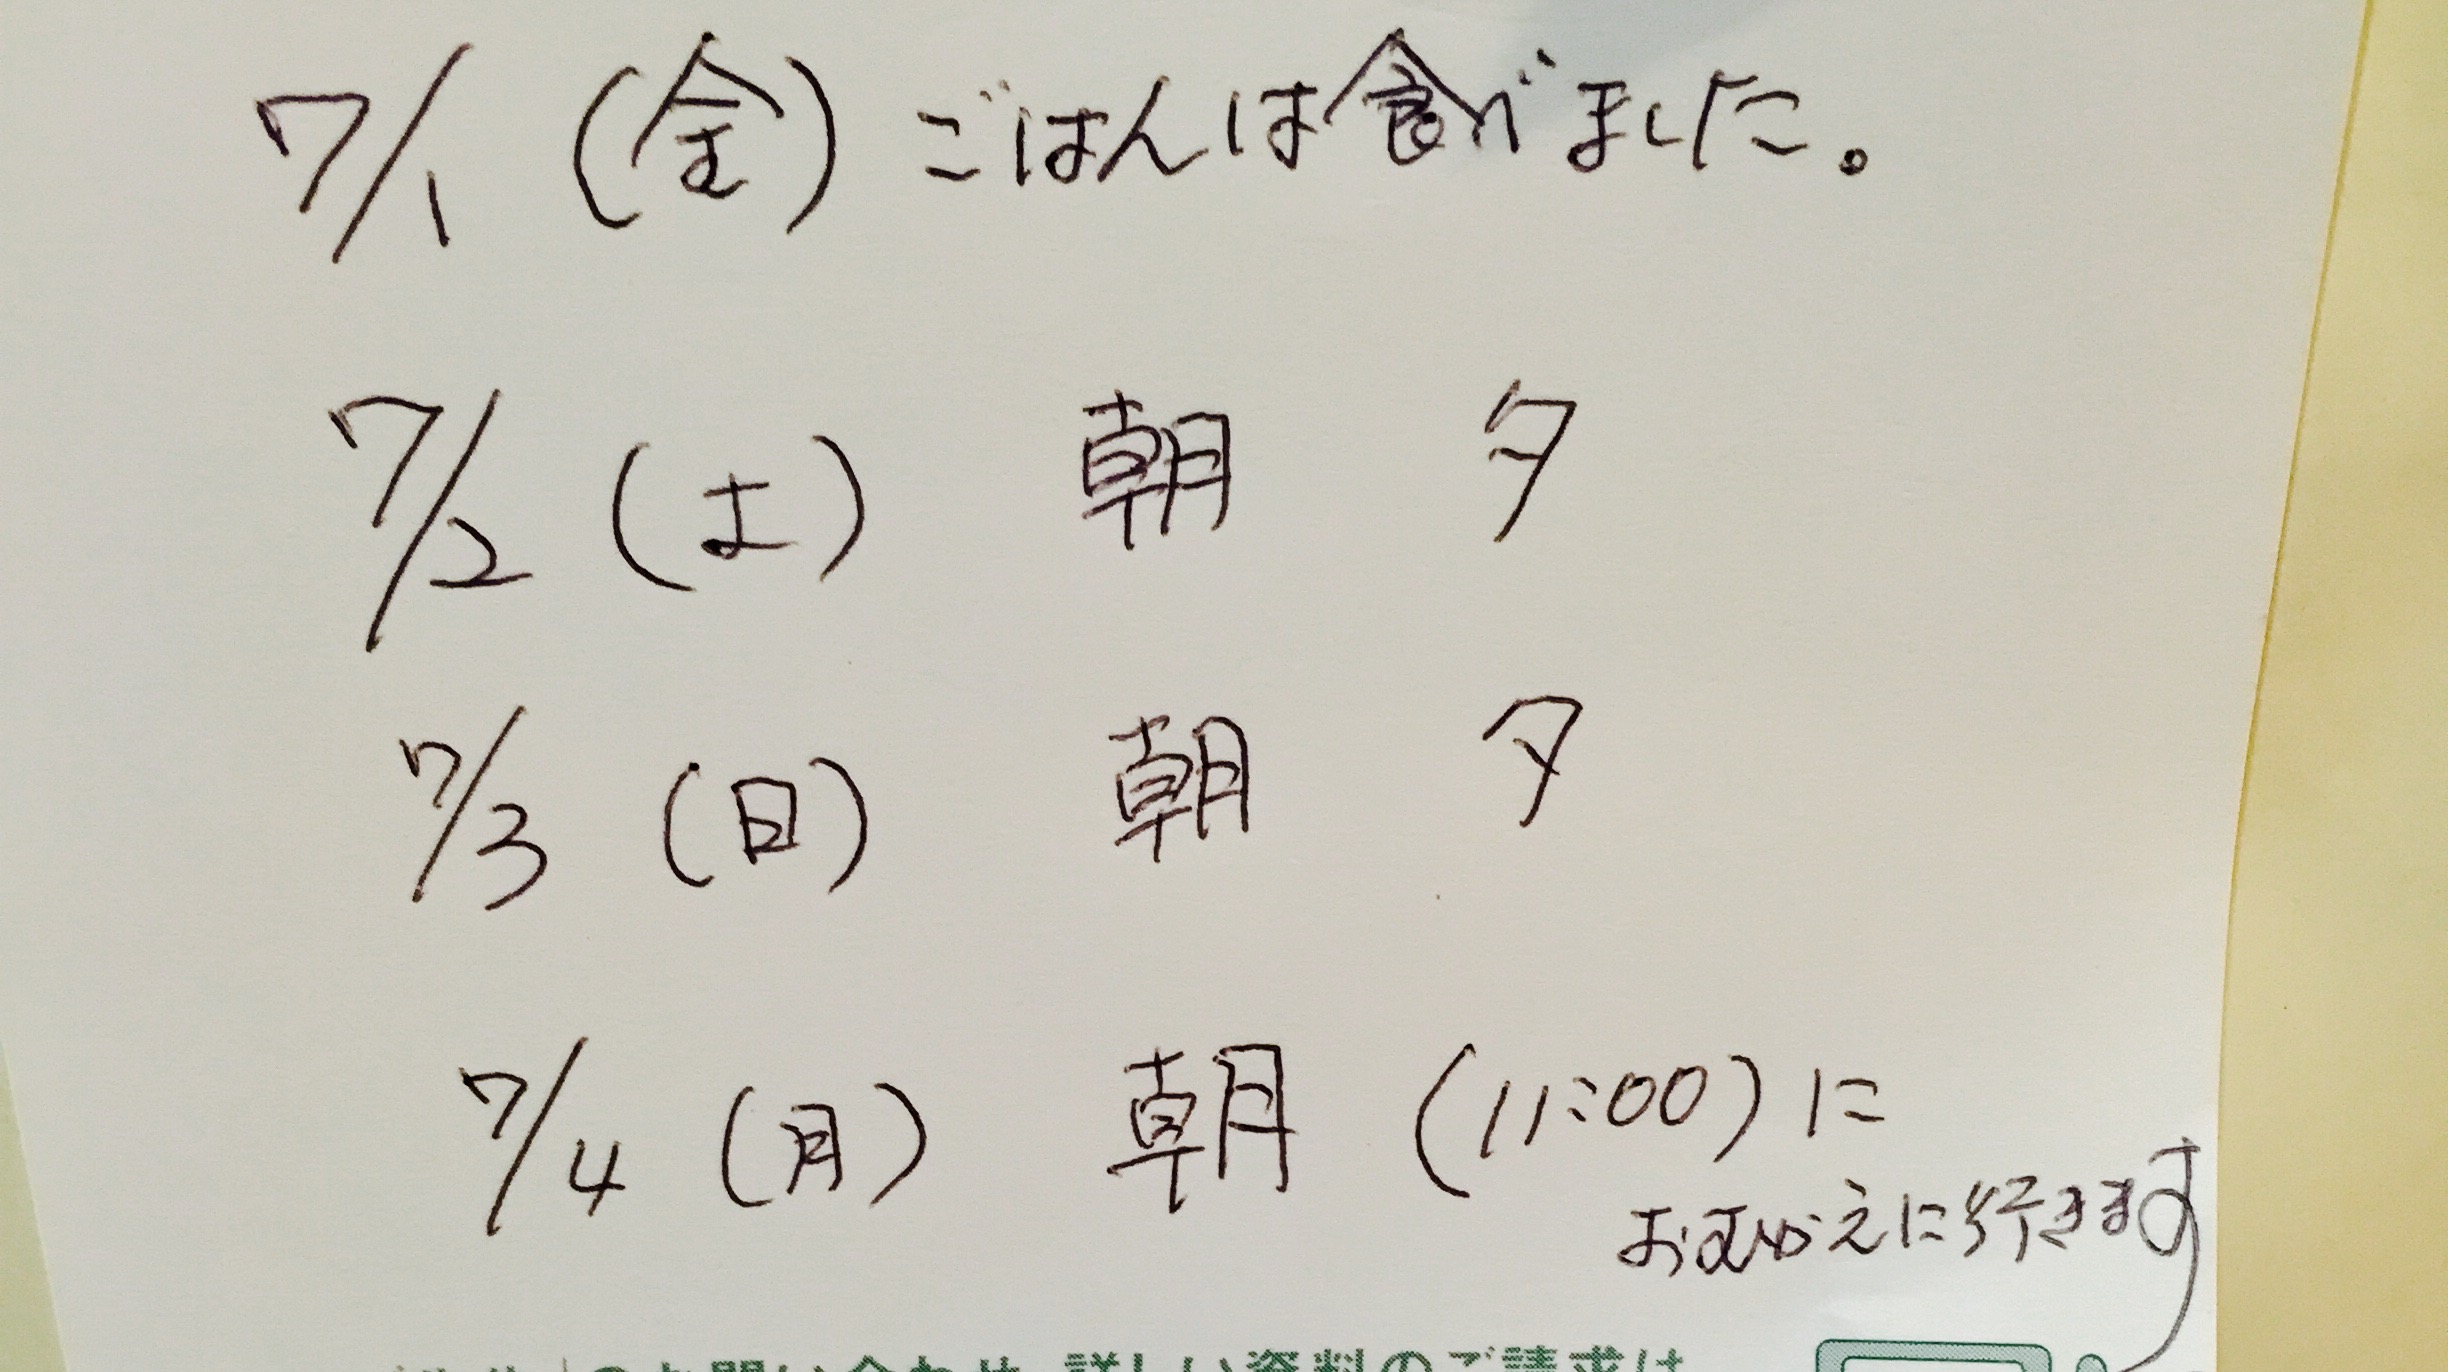 7/1 (金) ごはんは食べました。
7/2 (土) 朝 夕
7/3 (日) 朝 夕
7/4 (月) 朝 (11:00) に
おむかえに行きます
のお問い合わせ、詳しい資料のご請求は